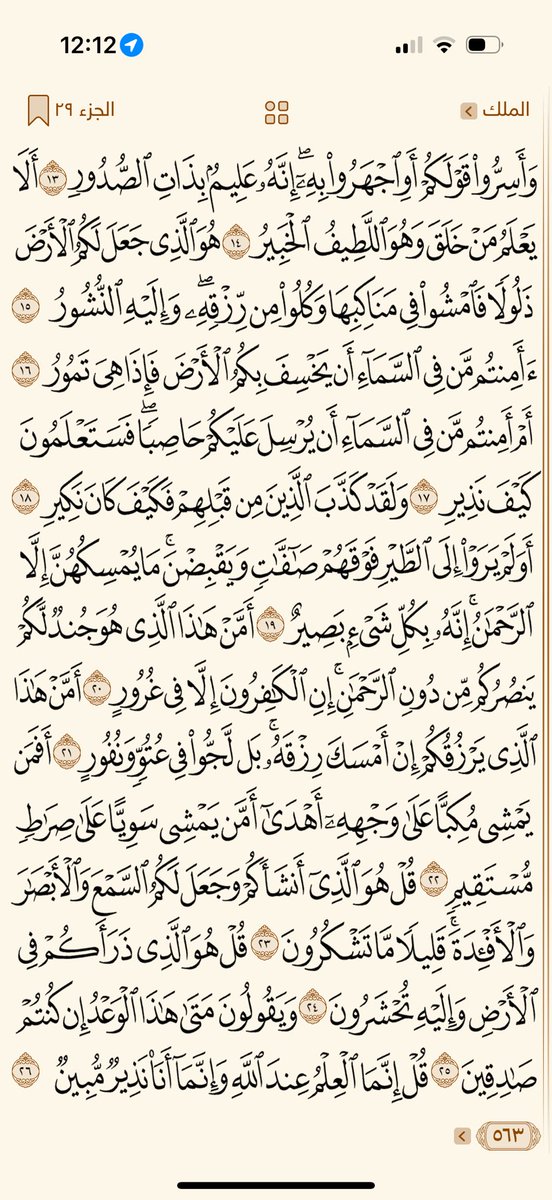 12:12
الملك
الجزء ٢٩
وَأَسِرُّوا۟ قَوْلَكُمْ أَوِ ٱجْهَرُوا۟ بِهِۦٓ ۖ إِنَّهُۥ عَلِيمٌۢ بِذَاتِ ٱلصُّدُورِ ١٣ أَلَا
يَعْلَمُ مَنْ خَلَقَ وَهُوَ ٱللَّطِيفُ ٱلْخَبِيرُ ١٤ هُوَ ٱلَّذِى جَعَلَ لَكُمُ ٱلْأَرْضَ
ذَلُولًا فَٱمْشُوا۟ فِى مَنَاكِبِهَا وَكُلُوا۟ مِن رِّزْقِهِۦ ۖ وَإِلَيْهِ ٱلنُّشُورُ ١٥
ءَأَمِنتُم مَّن فِى ٱلسَّمَآءِ أَن يَخْسِفَ بِكُمُ ٱلْأَرْضَ فَإِذَا هِىَ تَمُورُ ١٦
أَمْ أَمِنتُم مَّن فِى ٱلسَّمَآءِ أَن يُرْسِلَ عَلَيْكُمْ حَاصِبًا ۖ فَسَتَعْلَمُونَ
كَيْفَ نَذِيرِ ١٧ وَلَقَدْ كَذَّبَ ٱلَّذِينَ مِن قَبْلِهِمْ فَكَيْفَ كَانَ نَكِيرِ ١٨
أَوَلَمْ يَرَوْا۟ إِلَى ٱلطَّيْرِ فَوْقَهُمْ صَٰٓفَّٰتٍ وَيَقْبِضْنَ ۚ مَا يُمْسِكُهُنَّ إِلَّا
ٱلرَّحْمَٰنُ ۚ إِنَّهُۥ بِكُلِّ شَىْءٍۭ بَصِيرٌ ١٩ أَمَّنْ هَٰذَا ٱلَّذِى هُوَ جُندٌ لَّكُمْ
يَنصُرُكُم مِّن دُونِ ٱلرَّحْمَٰنِ ۚ إِنِ ٱلْكَٰفِرُونَ إِلَّا فِى غُرُورٍ ٢٠ أَمَّنْ هَٰذَا
ٱلَّذِى يَرْزُقُكُمْ إِنْ أَمْسَكَ رِزْقَهُۥ ۚ بَل لَّجُّوا۟ فِى عُتُوٍّ وَنُفُورٍ ٢١ أَفَمَن
يَمْشِى مُكِبًّا عَلَىٰ وَجْهِهِۦٓ أَهْدَىٰٓ أَمَّن يَمْشِى سَوِيًّا عَلَىٰ صِرَٰطٍ
مُّسْتَقِيمٍ ٢٢ قُلْ هُوَ ٱلَّذِىٓ أَنشَأَكُمْ وَجَعَلَ لَكُمُ ٱلسَّمْعَ وَٱلْأَبْصَٰرَ
وَٱلْأَفْـِٔدَةَ ۖ قَلِيلًا مَّا تَشْكُرُونَ ٢٣ قُلْ هُوَ ٱلَّذِى ذَرَأَكُمْ فِى
ٱلْأَرْضِ وَإِلَيْهِ تُحْشَرُونَ ٢٤ وَيَقُولُونَ مَتَىٰ هَٰذَا ٱلْوَعْدُ إِن كُنتُمْ
صَٰدِقِينَ ٢٥ قُلْ إِنَّمَا ٱلْعِلْمُ عِندَ ٱللَّهِ وَإِنَّمَآ أَنَا۠ نَذِيرٌ مُّبِينٌ ٢٦
٥٦٣